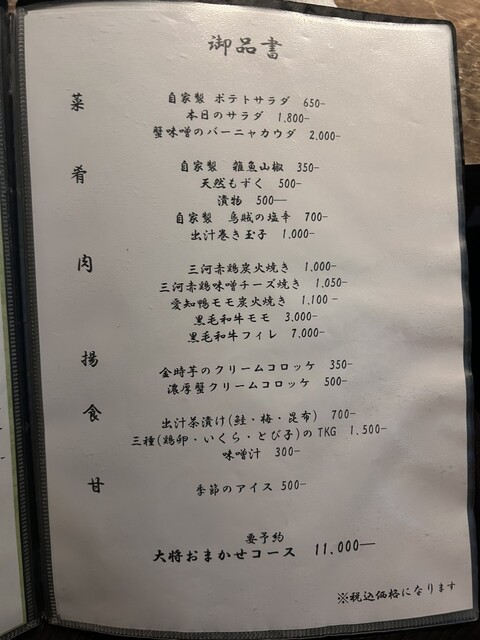 御品書
菜
自家製 ポテトサラダ 650-
本日のサラダ 1,800-
蟹味噌のバーニャカウダ 2,000-
肴
自家製 雑魚山椒 350-
天然もずく 500-
漬物 500-
自家製 烏賊の塩辛 700-
出汁巻き玉子 1,000-
肉
三河赤鶏炭火焼き 1,000-
三河赤鶏味噌チーズ焼き 1,050-
愛知鴨モモ炭火焼き 1,100-
黒毛和牛モモ 3,000-
黒毛和牛フィレ 7,000-
揚
金時芋のクリームコロッケ 350-
濃厚蟹クリームコロッケ 500-
食
出汁茶漬け(鮭・梅・昆布) 700-
三種(鶏卵・いくら・とび子)のTKG 1,500-
味噌汁 300-
甘
季節のアイス 500-
要予約
大将おまかせコース 11,000-
※税込価格になります